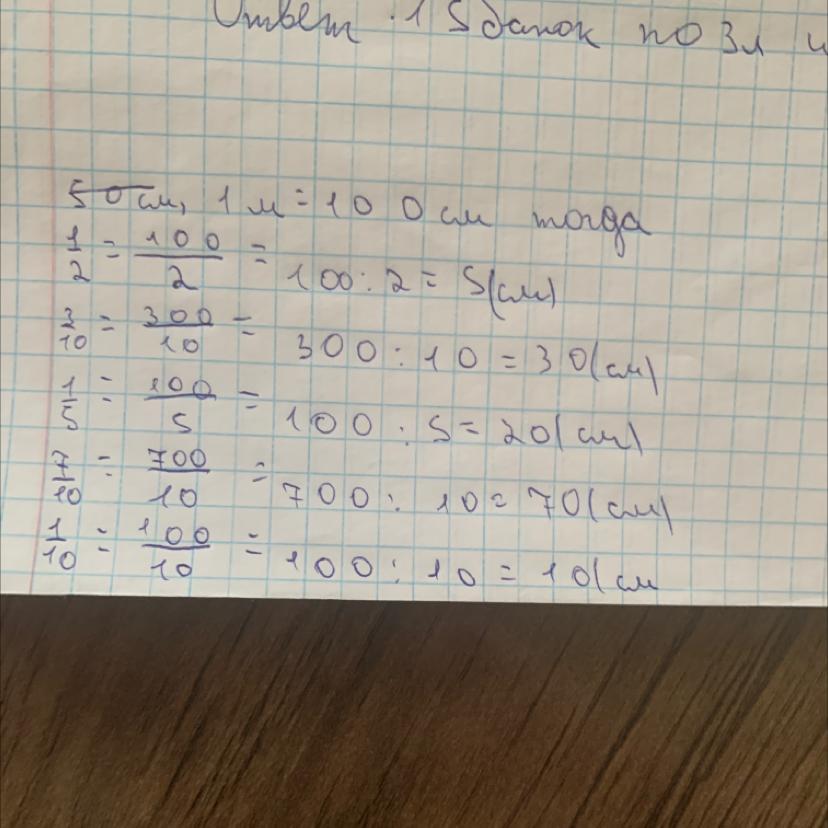 Ответ: 15 банок по 3л и
50 см, 1 м = 100 см тогда
1/2 = 100/2 = 100 : 2 = 5(см)
3/10 = 300/10 = 300 : 10 = 30(см)
1/5 = 100/5 = 100 : 5 = 20(см)
7/10 = 700/10 = 700 : 10 = 70(см)
1/10 = 100/10 = 100 : 10 = 10(см